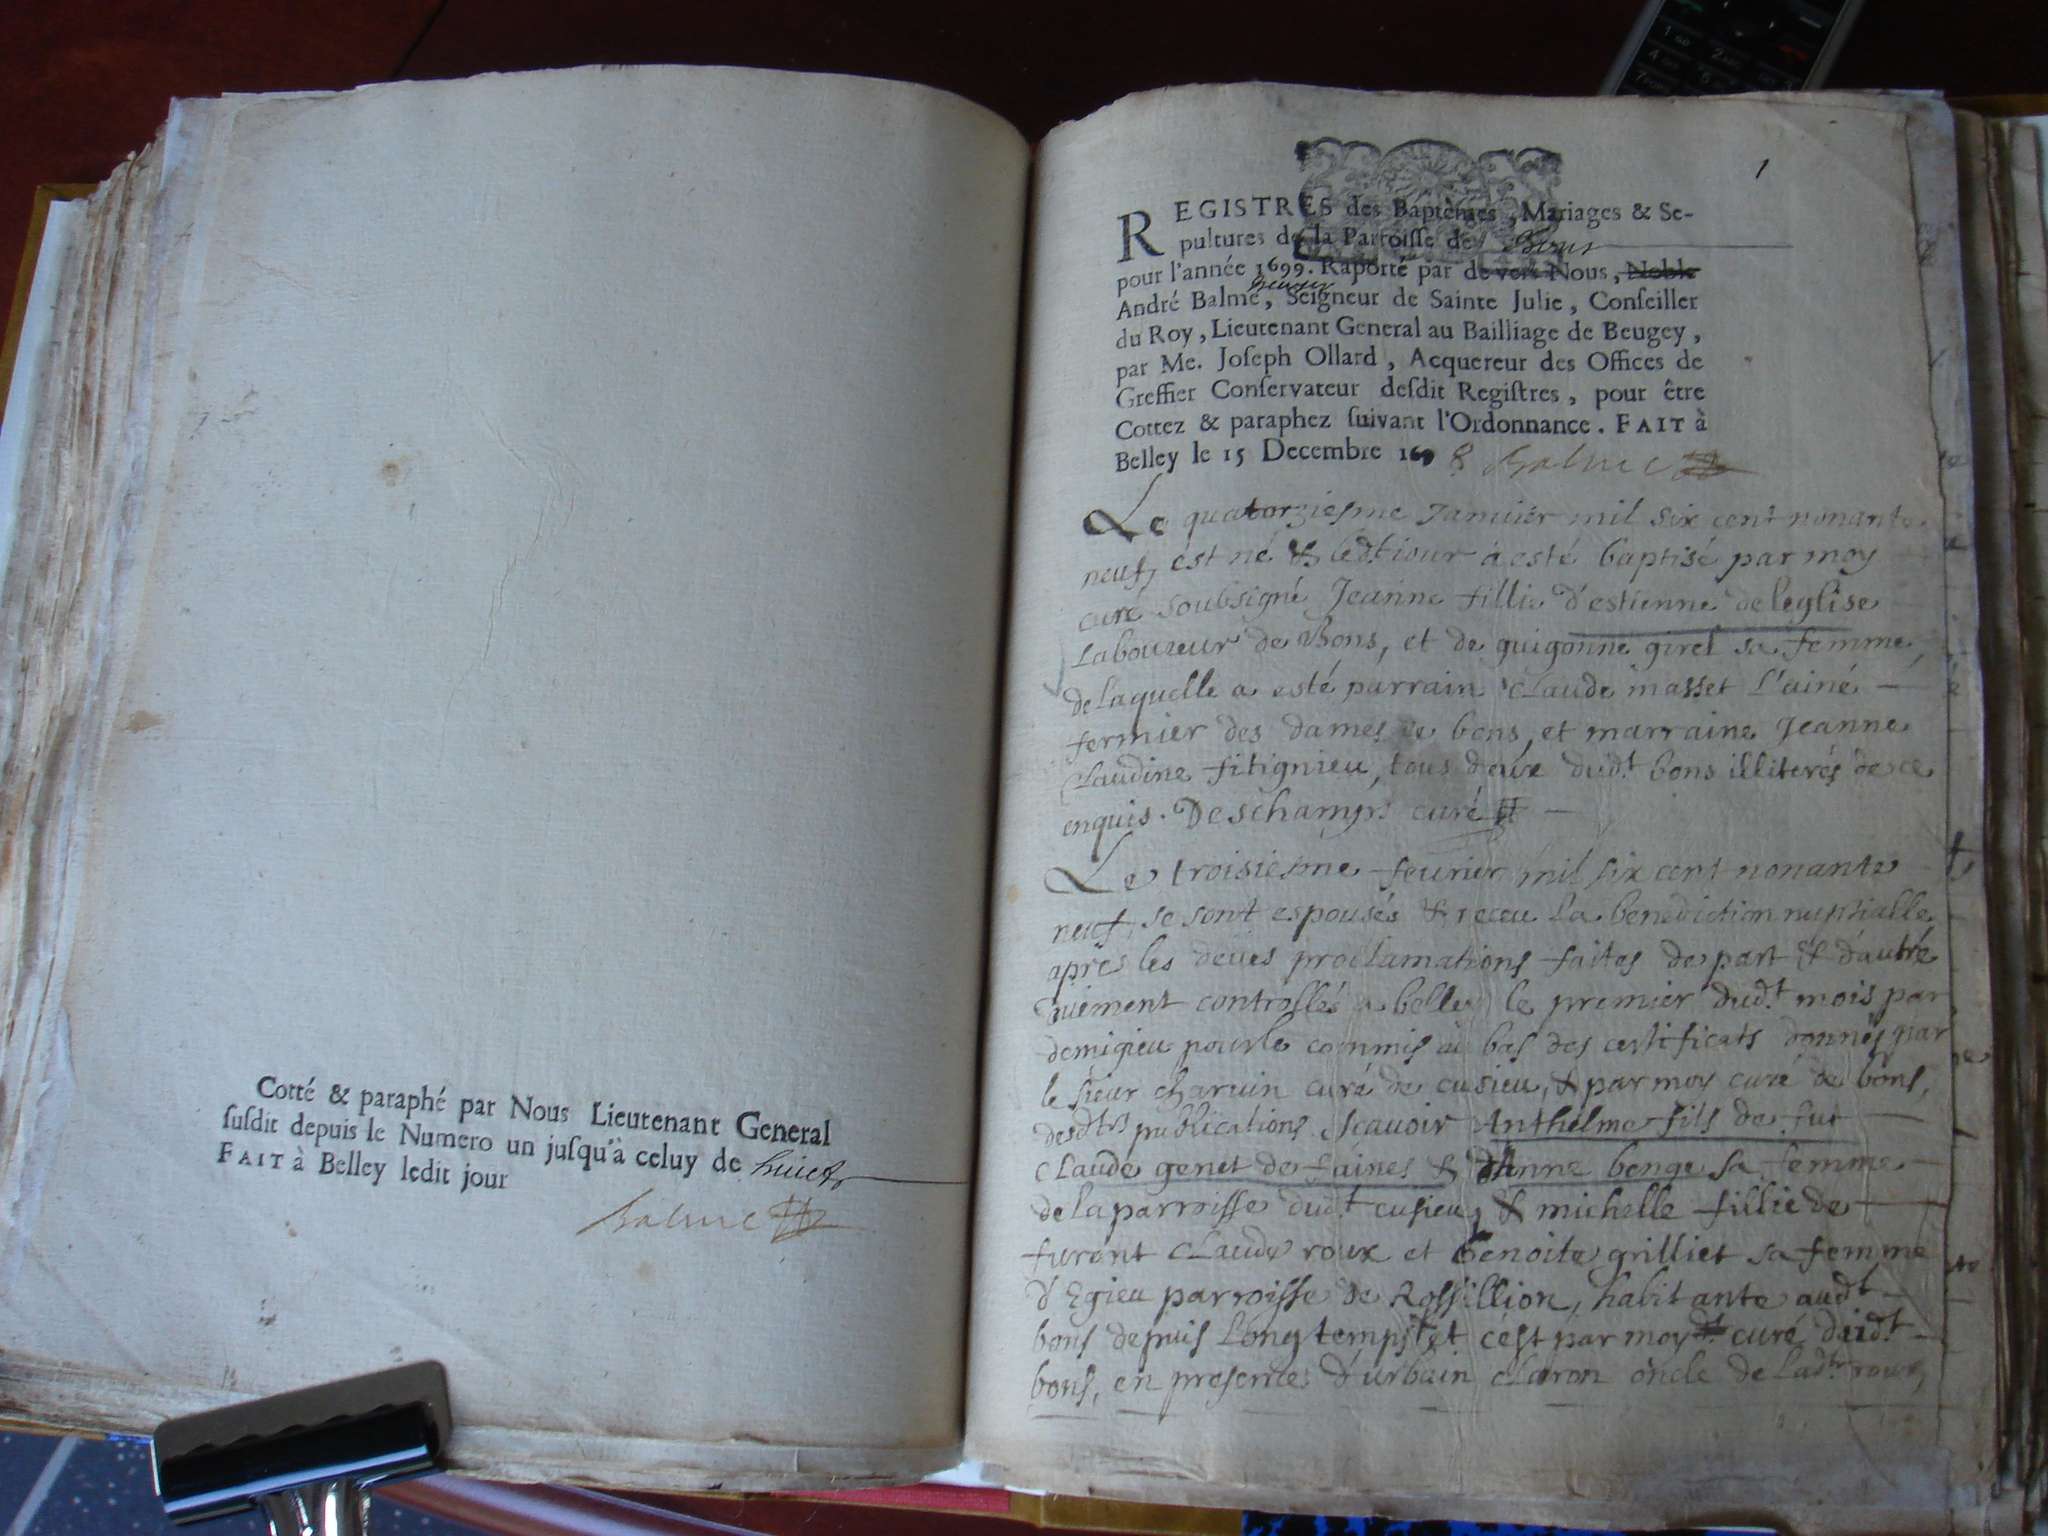 Cotté & paraphé par Nous Lieutenant General
ſuſdit depuis le Numero un juſqu'à celuy de huict
FAIT à Belley ledit jour
Balme
1
REGISTRES des Baptêmes, Mariages & Se-
pultures de la Parroiſſe de Bons
pour l'année 1699. Raporté par devers Nous, Noble
André Balme, Seigneur de Sainte Julie, Conſeiller
du Roy, Lieutenant General au Bailliage de Beugey,
par Me. Joſeph Ollard, Acquereur des Offices de
Greffier Conſervateur deſdit Regiſtres, pour être
Cottez & paraphez ſuivant l'Ordonnance. FAIT à
Belley le 15 Decembre 169 8 Balme
Le quatorziesme Januier mil six cent nonante
neuf, est né & ledt iour à esté baptisé par moy
curé soubsigné Jeanne fillie d'estienne de leglise
Laboureur de Bons, et de guigonne girel sa femme,
de laquelle a esté parrain Claude masset L'ainé
fermier des dames de bons, et marraine Jeanne
Claudine fitignieu, tous deux dudt bons illiterés de ce
enquis. Deschamps curé
Le troisiesme feurier mil six cent nonante
neuf, se sont espousés & receu La benediction nuptialle
apres les deües proclamations faites de part & d'autre
controllés a belley le premier dudt mois par
demigieu pour le commis au bas des certificats donnés par
le sieur charuin curé de cusieu, & par moy curé de bons,
desdtes publications, scauoir Anthelme fils de fut
Claude genet de & d'Anne benge sa femme
de la parroisse dudt cusieu, & michelle fillie de
furent Claude roux et Benoite grilliet sa femme
d'Egieu parroisse de Rossillion, habitante audt
bons depuis Longtemps, et c'est par moy curé dudt
bons, en presence d'urbain Claron oncle de Ladte roux,